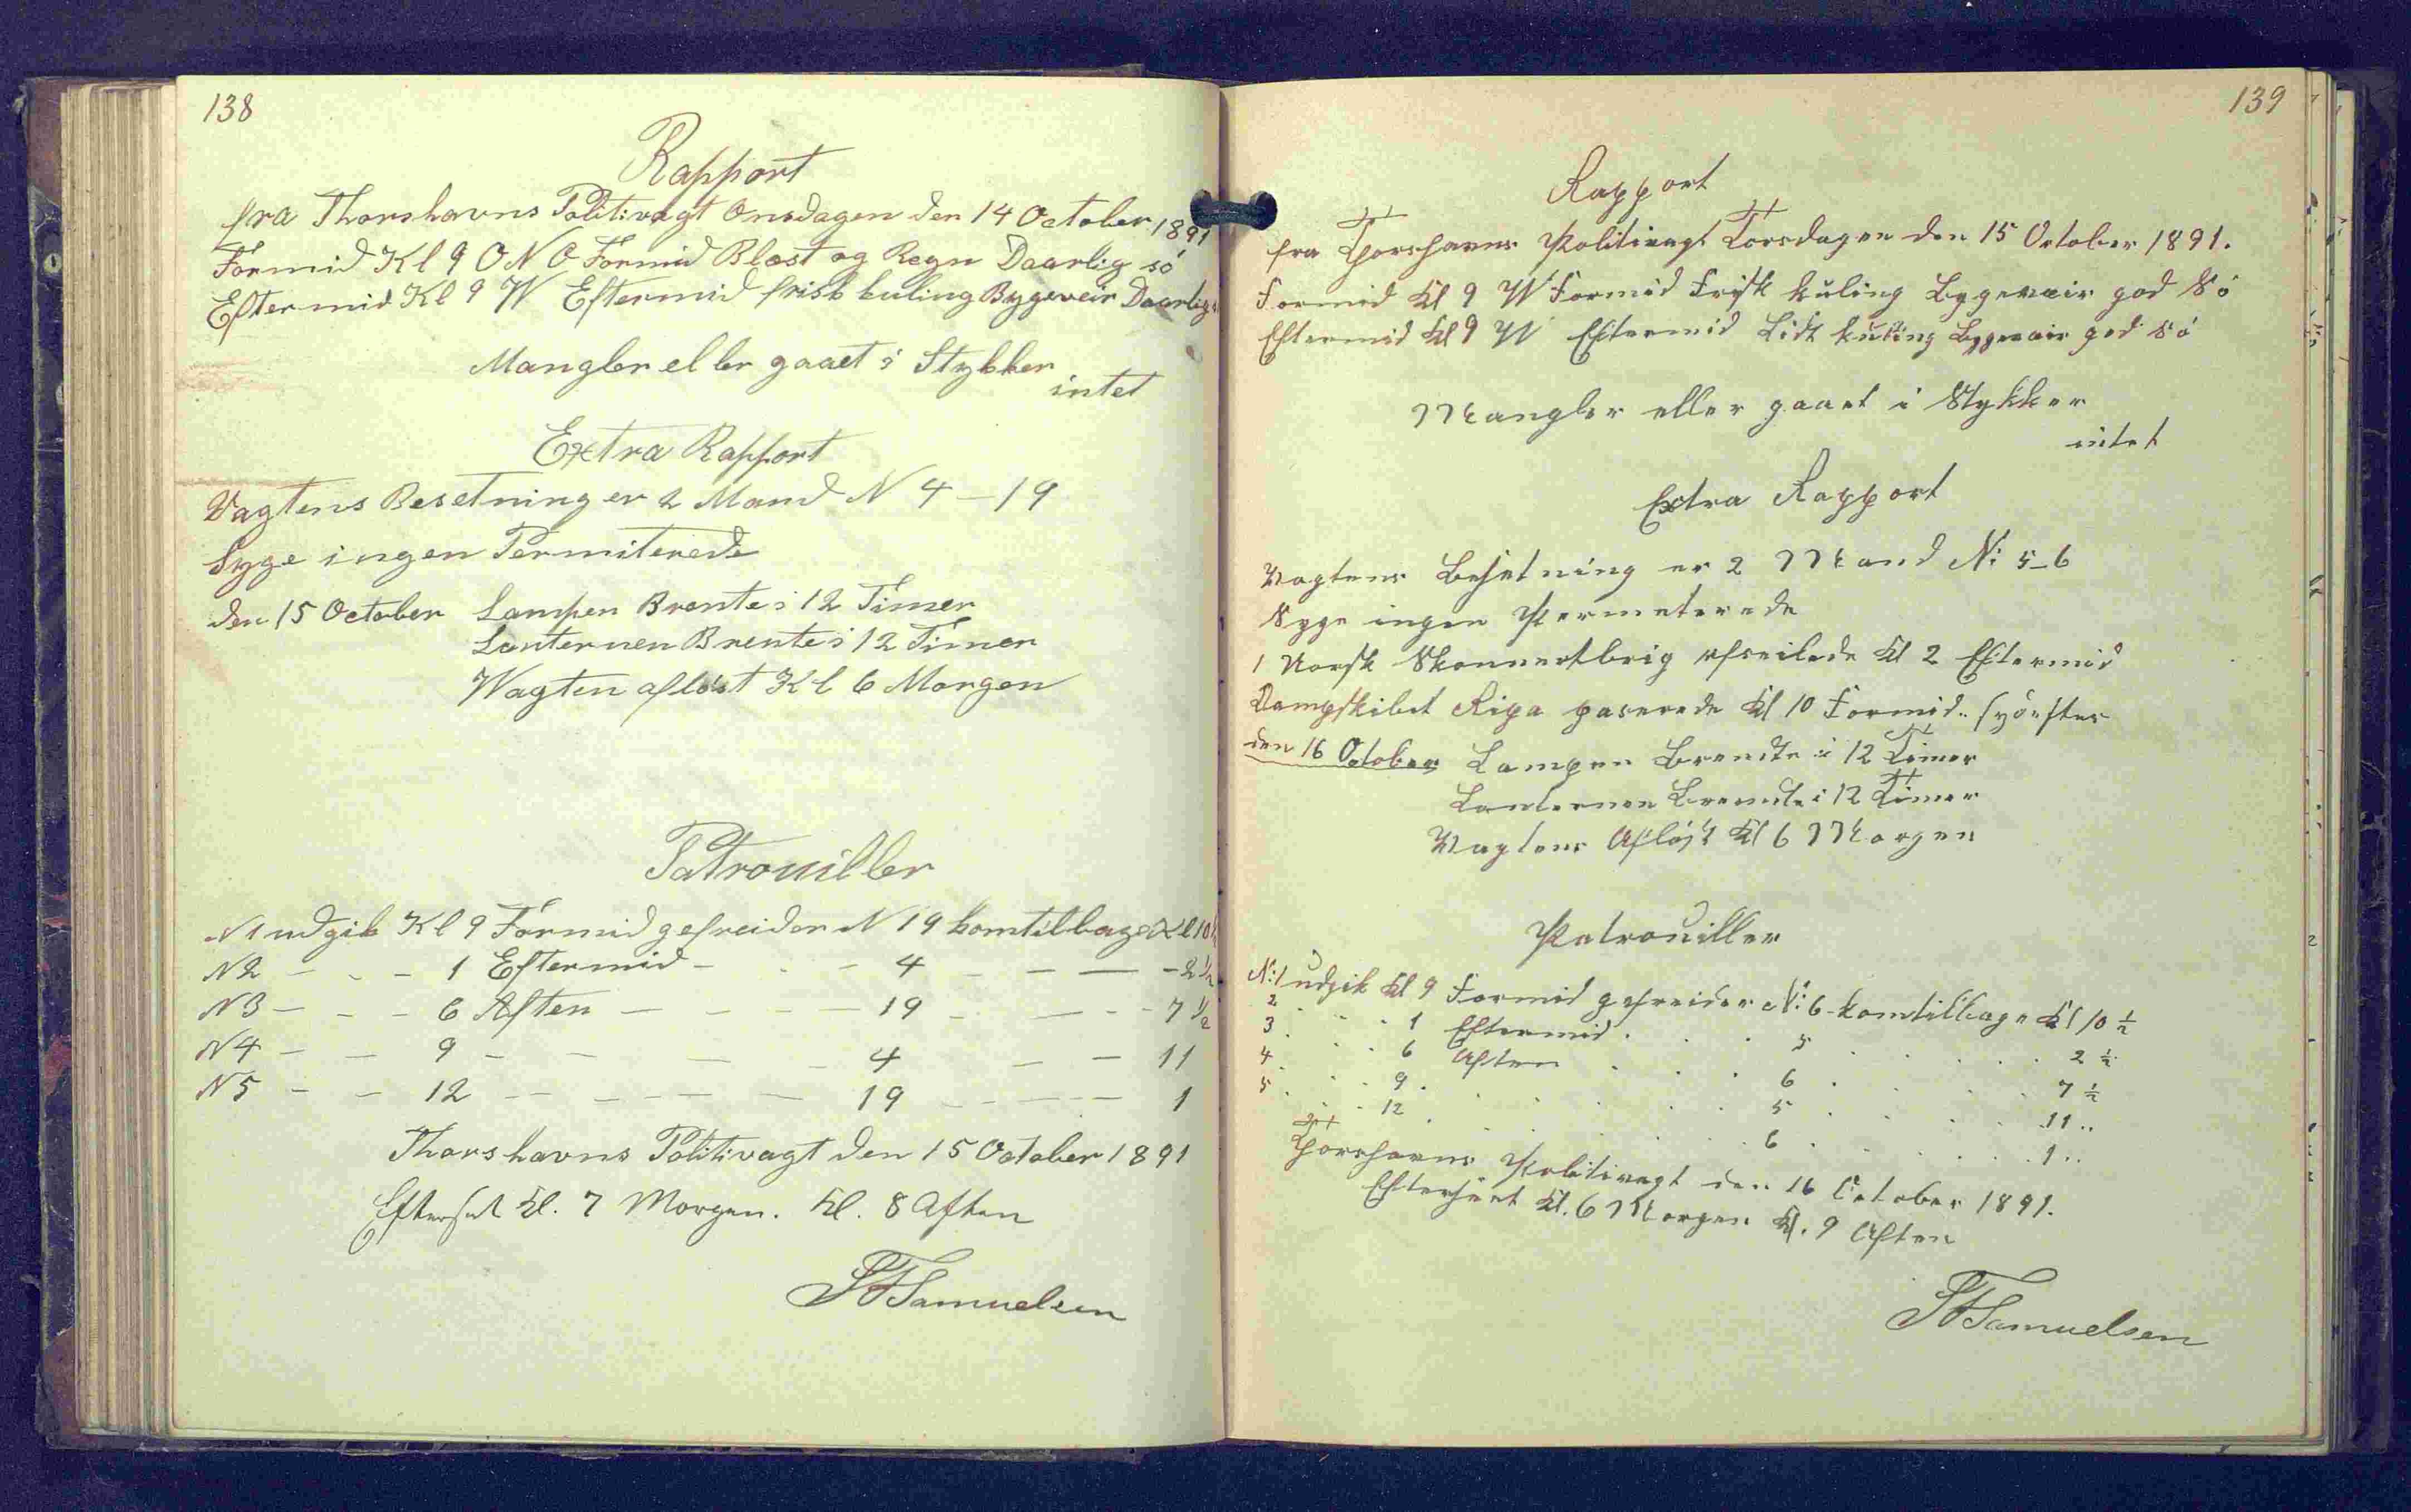 138
Rapport
fra Thorshavns Politivagt Onsdagen den 14 October 1891
Formid Kl 9 O N O Formid Blæst og Regn Daarlig só
Eftermid Kl 9 W Eftermid frisk kuling Bygeveir Daarlig
Mangler eller gaaet i Stykker
intet
Extra Rapport
Vagtens Besetning er 2 Mand N 4 - 19
Syge ingen Permiterede
den 15 October Lampen Brente i 12 Timer
Lanternen Brente i 12 Timer
Wagten aflöst Kl 6 Morgen
Patrouiller
N 1 udgik Kl 9 Formid gefreider N 19 kom tilbage Kl 10 1/2
N 2 - - - 1 Eftermid - - - 4 - - - - 2 1/2
N 3 - - - 6 Aften - - - - 19 - - - - 7 1/2
N 4 - - 9 - - - - 4 - - 11
N 5 - - 12 - - - - - 19 - - - - 1
Thorshavns Politivagt den 15 October 1891
Efterset Kl. 7 Morgen. Kl. 8 Aften
Samuelsen
139
Rapport
fra Thorshavns Politivagt Torsdagen den 15 October 1891.
Formid Kl 9 W Formid Frisk kuling Bygeveir god Só
Eftermid Kl 9 W Eftermid Lidt kuling Bygeveir god Só
Mangler eller gaaet i Stykker
intet
Extra Rapport
Vagtens Besetning er 2 Mand No: 5-6
Syge ingen Permeterede
1 Norsk Skonnertbrig afseilede Kl 2 Eftermid
Dampskibet Ripa paserede Kl 10 Formid..
den 16 October Lampen Brendte i 12 Timer
Lanternen Brendte i 12 Timer
Vagtens Afløst Kl 6 Morgen
Patrouiller
No: 1 udgik Kl 9 Formid gefreider No: 6 kom tilbage Kl 10 1/2
2 . . . 1 Eftermid . . . 5 . . . . 2 1/2
3 . . . 6 Aften . . . 6 . . . . 7 1/2
4 . . . 9 . . . . . 5 . . . . 11 ..
5 . . . 12 . . . . . 6 . . . . 1 ..
Thorshavns Politivagt den 16 October 1891.
Efterseet Kl. 6 Morgen Kl. 9 Aften
Samuelsen